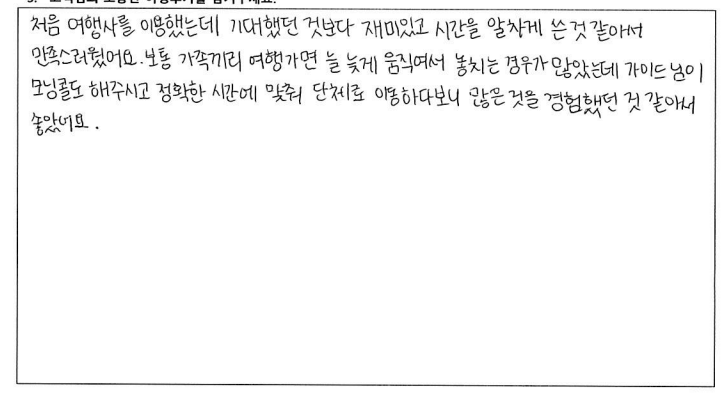 처음 여행사를 이용했는데 기대했던 것보다 재미있고 시간을 알차게 쓴 것 같아서
만족스러웠어요. 보통 가족끼리 여행가면 늘 늦게 움직여서 놓치는 경우가 많았는데 가이드님이
모닝콜도 해주시고 정확한 시간에 맞춰 단체로 이동하다보니 많은 것을 경험했던 것 같아서
좋았어요.